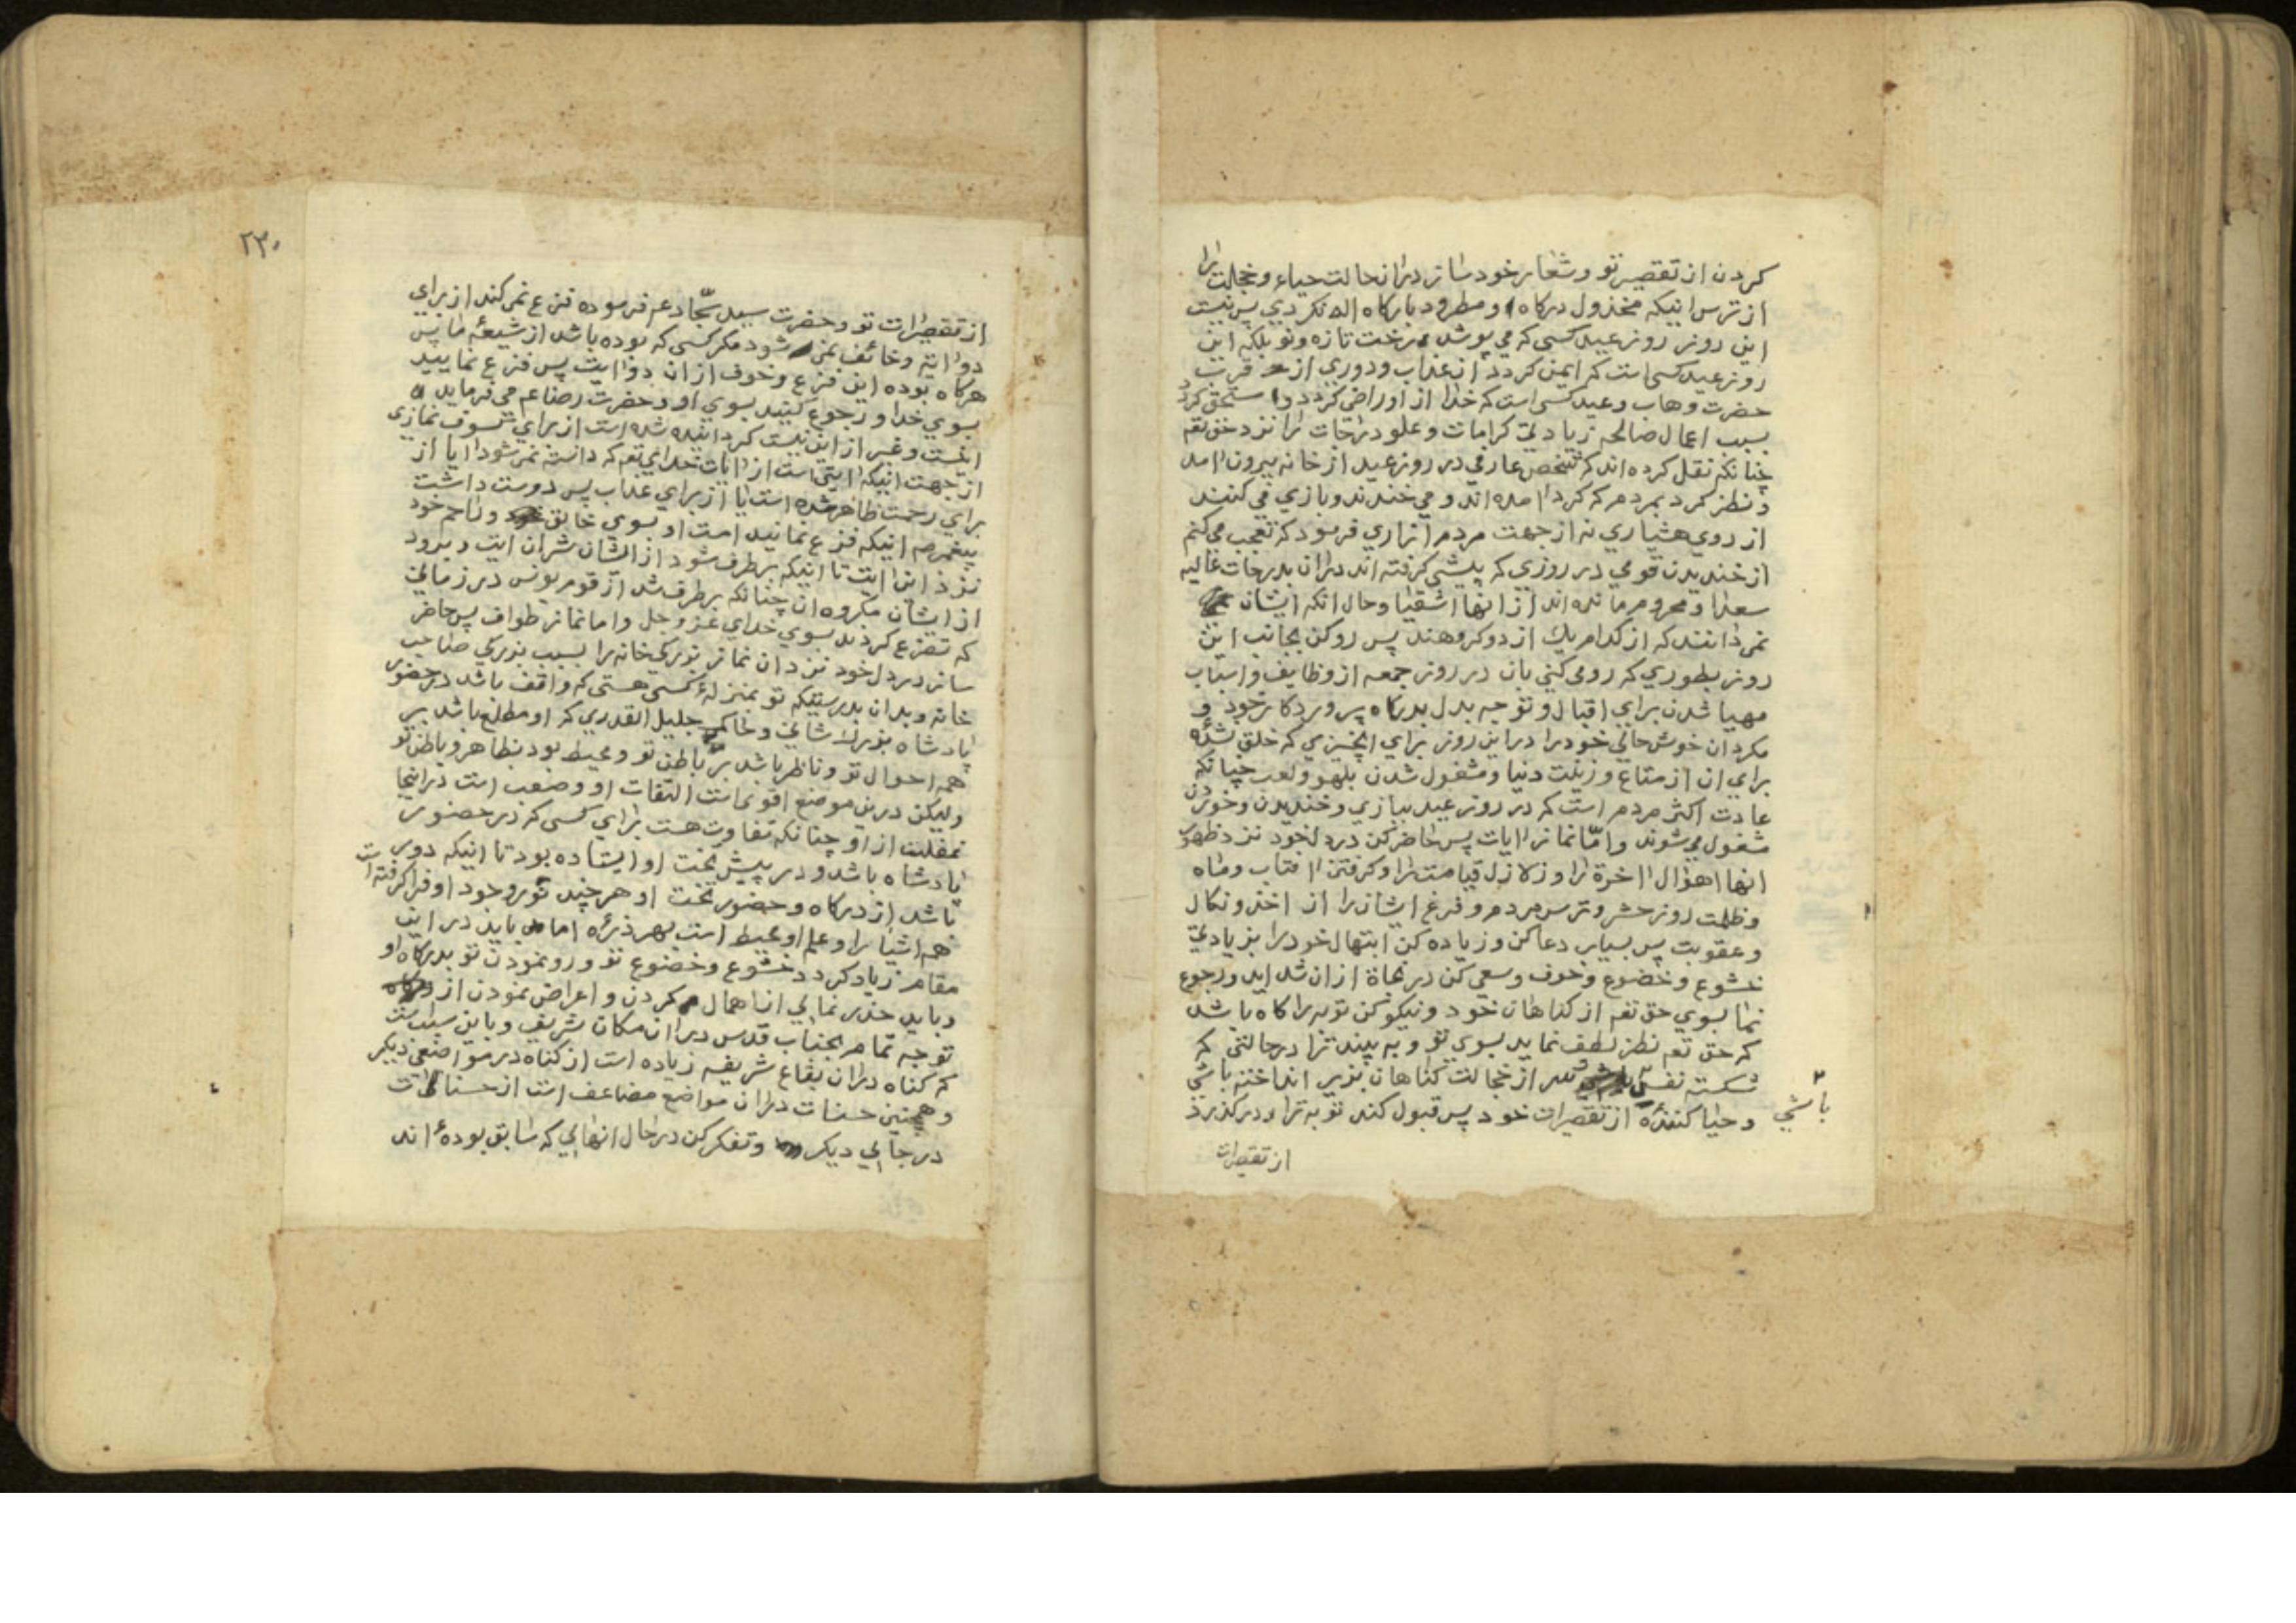 كردن از تقصير تو و شعار خود ساز در انحالت حياء و خجالت را
از ترس اينكه مخذول دركاه او مطرود باركاه اله نكردي پس نيست
اين روز روز عيد كسي كه مي پوشد رخت تازه و نو بلكه اين
روز عيد كسي است كه ايمن كردد از عذاب و دوري از قرب
حضرت وهاب و عيد كسي است كه خدا از او راضي كردد و مستحق كردد
بسبب اعمال صالحه زيادتي كرامات و علو درجات را نزد حق تعه
چنانكه نقل كرده اند كه شخص عارفي در روز عيد از خانه بيرون امد
و نظر كرد بمردم كه كرد امده اند و مي خندند و بازي مي كنند
از روي هشياري نه از جهت مردم ازاري فرمود كه تعجب مي كنم
از خنديدن قومي در روزي كه پيشي كرفته اند دران بدرجات عاليه
سعدا و محروم مانده اند از انها اشقيا و حال انكه ايشان
نمي دانند كه از كدام يك از دو كروهند پس رو كن بجانب اين
روز بطوري كه رو مي كني بان در روز جمعه از وظايف و اسباب
مهيا شدن براي اقبال و توجه بدل بدركاه پروردكار خود و
مكردان خوش حالي خود را در اين روز براي انچيزي كه خلق نشده
براي ان از متاع و زينت دنيا و مشغول شدن بلهو و لعب چنانكه
عادت اكثر مردم است كه در روز عيد ببازي و خنديدن و خوردن
مشغول مي شوند و امّا نماز ايات پس حاضر كن در دل خود نزد ظهور
انها اهوال اخرة را و زلازل قيامت را و كرفتن افتاب و ماه
و ظلمت روز حشر و ترس مردم و فزع ايشان را از اخذ و نكال
و عقوبت پس بسيار دعا كن و زياده كن ابتهال خود را بزيادتي
خشوع و خضوع و خوف و سعي كن در نجاة از ان شدايد و رجوع
نما بسوي حق تعه از كناهان خود و نيكو كن توبه را كاه باشد
كه حق تعه نظر لطف نمايد بسوي تو و به بيند ترا در حالتي كه
شكسته نفس باشي و سر از خجالت كناهان بزير انداخته باشي
باشي
و حيا كننده از تقصيرات خود پس قبول كند توبه ترا و در كذرد
از تقصيرات
٢٣٠
از تقصيرات تو و حضرت سيد سجّاد عم فرموده فزع نمي كند از براي
دو اية و خائف نمي شود مكر كسي كه بوده باشد از شيعهٔ ما پس
هركاه بوده اين فزع و خوف از ان دو ايت پس فزع نماييد
بسوي خدا و رجوع كنيد بسوي او و حضرت رضا عم مي فرمايد
اينست و غير از اين نيست كردانيده شده است از براي كسوف نمازي
از جهت اينكه ايتي است از ايات خداي تعه كه دانسته نمي شود ايا از
براي رحمت ظاهر شده است يا از براي عذاب پس دوست داشت
پيغمبر ص اينكه فزع نمايند امت او بسوي خالق و راحم خود
نزد اين ايت تا اينكه برطرف شود از ايشان شر ان ايت و برود
از ايشان مكروه ان چنانكه برطرف شد از قوم يونس در زماني
كه تضرع كردند بسوي خداي عز و جل و اما نماز طواف پس حاضر
ساز در دل خود نزد ان نماز بزركي خانه را بسبب بزركي صاحب
خانه و بدان بدرستيكه تو بمنزلهٔ كسي هستي كه واقف باشد در حضور
پادشاه بزرك شاني و حاكم جليل القدري كه او مطلع باشد بر
همه احوال تو و ناظر باشد بر باطن تو و محيط بود بظاهر و باطن تو
وليكن در ين موضع اقوي است التفات او و صعب است در اينجا
غفلت از او چنانكه تفاوت هست براي كسي كه در حضور
پادشاه باشد و در پيش تخت او ايستاده بود تا اينكه دور
باشد از دركاه و حضور تخت او هر چند نور وجود او فرا كرفته است
همه اشيا را و علم او محيط است بهر ذره اما بايد در اين
مقام زياد كردد خشوع و خضوع تو و رو نمودن تو بدركاه او
و بايد حذر نمايي از اهمال كردن و اعراض نمودن از
توجه تمام بجناب قدس در ان مكان شريف و باين سبب است
كه كناه در ان بقاع شريفه زياده است از كناه در مواضع ديكر
و همچنين حسنات در ان مواضع مضاعف است از حسنات
در جايي ديكر و تفكر كن در حال انهايي كه سابق بوده اند